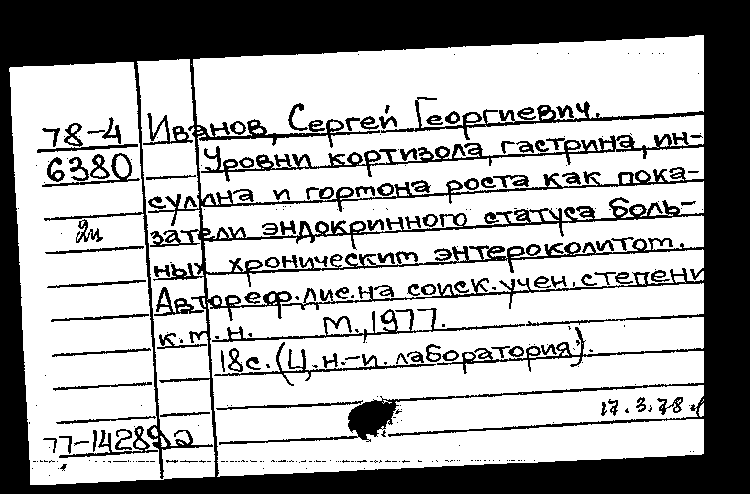 78-4 Иванов, Сергей Георгиевич.
6380 Уровни кортизола, гастрина, ин-
сулина и гормона роста как пока-
2и затели эндокринного статуса боль-
ных хроническим энтероколитом.
Автореф. дис. на соиск. учен. степени
к.м.н. М., 1977.
18с. (Ц. н.-и. лаборатория).
17.3.78
77-14289а